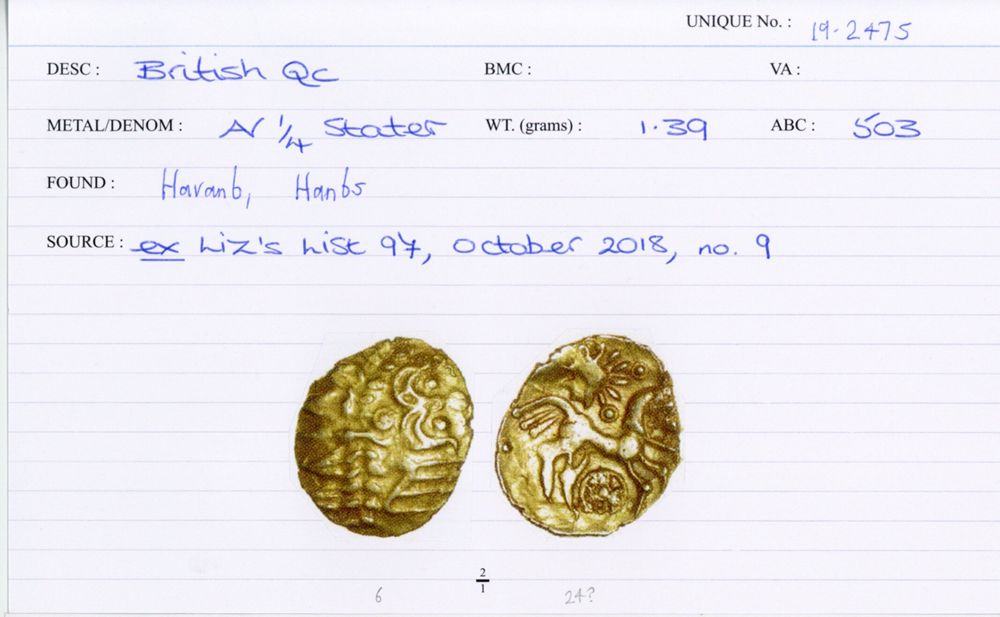 UNIQUE No. : 19-2475
DESC : British Qc BMC : VA :
METAL/DENOM : AV 1/4 Stater WT. (grams) : 1.39 ABC : 503
FOUND : Havant, Hants
SOURCE : ex Liz's List 97, October 2018, no. 9
2/1
6 24?